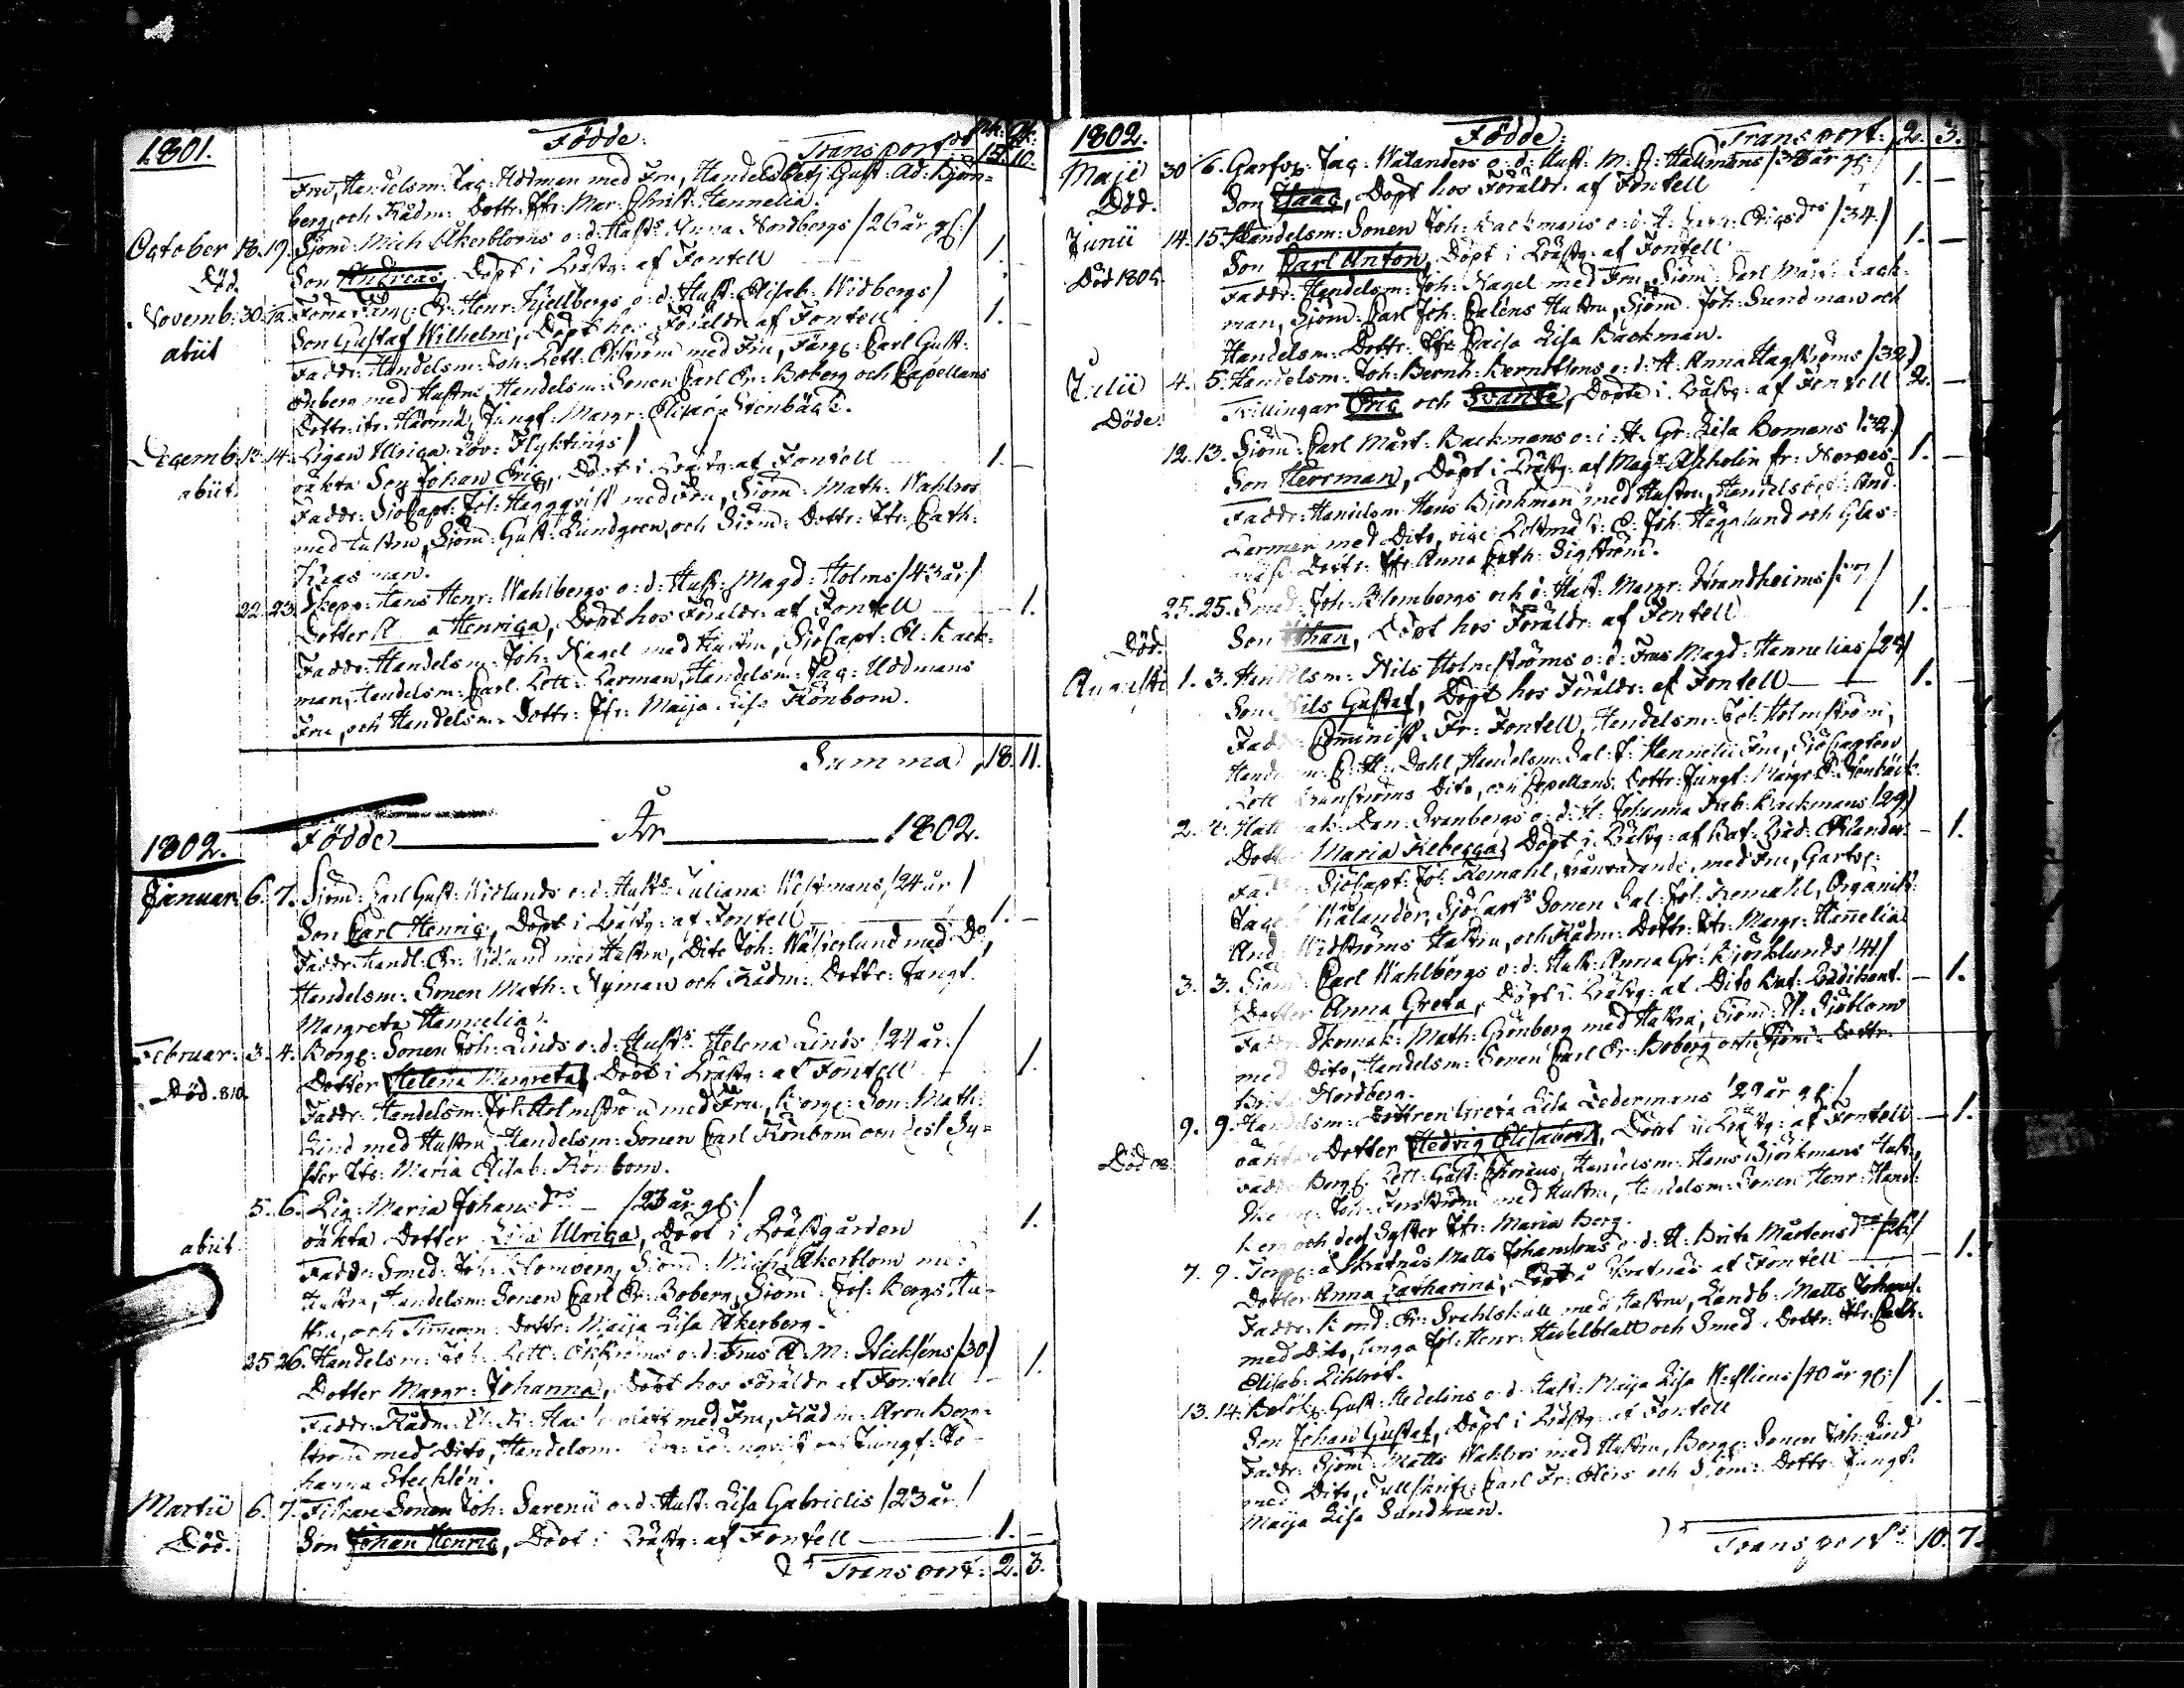 1801. Födde. Transport 15. 10.
Fru, Handelsm: Jac: Uddman med Fru, Handelsbetj: Gust: Ad: Björn-
berg, och Rådm: Dottr: Jfr: Mar: Christ: Hannelia.
October 18. 19. Sjöm: Mich: Åkerbloms o: d: Hust: Anna Nordbergs /26 år gl:/
Död. Son Andreas, Döpt i Prästg: af Fontell 1. —
Novemb: 30. Henr: Kjellbergs o: d: Hust: Elisab: Widbergs/
abiit Son Gustaf Wilhelm, Döpt hos Föräldr: af Fontell 1. —
Faddr: Handelsm: Joh: Lett: Ekström med Fru, Färg: Carl Gust:
med Hustru, Handelsm: Sonen Carl Er: Boberg och Capellans
Dottr: fr: Härmä, Jungf: Margr: Elisab: Stenbäck.
Decemb: 13. 14. Pigan Ulrica Lov: Flyktings/
abiit. oäkta Son Johan Eric, Döpt i Prästg: af Fontell 1. —
Faddr: SjöCapt: Joh: Häggqvist med Fru, Sjöm: Math: Wahlros
med Hustru, Sjöm: Gust: Lundgren, och Sjöm: Dottr: Jfr: Cath:
22. 23. Skepp: Hans Henr: Wahlbergs o: d: Hust: Magd: Holms /43 år/
Dotter Henrica, Döpt hos Föräldr: af Fontell — 1.
Faddr: Handelsm: Joh: Nagel med Hustru, SjöCapt: El: Back-
man, Handelsm: Carl Lett: Larman, Handelsm: Jac: Uddmans
Fru, och Handelsm: Dottr: Jfr: Maija Lisa Rönbom.
Summa 18. 11.
1802. Födde År 1802.
Januar: 6. 7. Sjöm: Carl Gust: Widlunds o: d: Hust: Juliana Westmans /24 år/
Son Carl Henric, Döpt i Prästg: af Fontell 1. —
Faddr: Handl: Er: Widlund med Hustru, Dito Joh: Wästerlund med Do,
Handelsm: Sonen Math: Nyman och Rådm: Dottr: Jungf:
Margreta Hannelia.
Februar: 3. 4. Borg: Sonen Joh: Linds o: d: Hust: Helena Linds /24 år:/
Död. 810. Dotter Helena Margreta, Döpt i Prästg: af Fontell 1.
Faddr: Handelsm: Joh: Holmström med Fru, Borg: Son: Math:
Lind med Hustru, Handelsm: Sonen Carl Rönbom och des Sy-
ster Jfr: Maria Elisab: Rönbom.
5. 6. Pig: Maria Johansdr — /23 år gl:/
abiit. oäkta Dotter Lisa Ulrica, Döpt i Prästgården 1.
Faddr: Smed: Joh: Blomberg, Sjöm: Mich: Åkerblom med
Hustru, Handelsm: Sonen Carl Er: Boberg, Sjöm: Joh: Bergs Hu-
stru, och Timerm: Dottr: Maija Lisa Åkerberg.
25. 26. Handelsm: Joh: Lett: Ekströms o: d: Frus C: M: Stichléns /30/
Dotter Margr: Johanna, Döpt hos Föräldr: af Fontell 1.
Faddr: Rådm: med Fru, Rådm: Aron Born-
ström med Dito, Handelsm: och Jungf: Jo-
hanna Stechlén.
Martii 6. 7. Fiskare Sonen Joh: Sarenii o: d: Hust: Lisa Gabrielis /23 år:/
Död. Son Johan Henric, Döpt i Prästg: af Fontell 1. —
Transport: 2. 3.
1802. Födde. Transport: 2. 3.
Maji 30. 6. Garfv: Jac: Wälanders o: d: Hust: M: Hallmans /38 år gl:/
Död. Son Isaac, Döpt hos Föräldr: af Fontell 1. —
Junii 14. 15. Handelsm: Sonen Joh: Backmans o: d: H: Ericsdrs /34./
Död 1804. Son Carl Anton, Döpt i Prästg: af Fontell 1. —
Faddr: Handelsm: Joh: Nagel med Fru, Sjöm: Carl Mårt: Back-
man, Sjöm: Carl Joh: Caléns Hustru, Sjöm: Joh: Sundman och
Handelsm: Dottr: Jfr: Caisa Lisa Backman.
Julii 4. 5. Handelsm: Joh: Bernh: Berndtsons o: d: H: Anna Hagströms /32/
Döde. Tvillingar Eric och Svante, Döpte i Prästg: af Fontell 2. —
12. 13. Sjöm: Carl Mårt: Backmans o: d: H: Gr: Lisa Bomans /32/
Son Herrman, Döpt i Prästg: af Magr Aspholin fr: Nerpes 1. —
Faddr: Handelsm: Hans Björkman med Hustru, Handelsbetj: And:
Larman med Dito, Joh: Hägglund och Glas-
Dottr: Jfr: Anna Cath: Sigström.
25. 25. Smed: Joh: Blombergs och d: Hust: Margr: Strandheims
Död. Son Johan, Döpt hos Föräldr: af Fontell 1. —
Augusti 1. 3. Handelsm: Nils Holmströms o: d: Frus Magd: Hannelias
Son Nils Gustaf, Döpt hos Föräldr: af Fontell 1. —
Fadd: Comminist: Fr: Fontell, Handelsm: Joh: Holmström,
Handelsm: Dahl, Handelsm: Sal: J: Hannelii Fru, SjöCapten
Dito, och Capellans Dottr: Jungf: Margr: E: Stenbäck.
2. 4. Hattmak: Dan: Svanbergs o: d: H: Johanna Reb: Backmans /29/
Dotter Maria Rebecca, Döpt i Prästg: af — 1.
Faddr: SjöCapt: Joh: Remahl, frånvarande, med Fru, Garfv:
Jacob Wälander, SjöCapts Sonen Sal: Joh: Remahl, Organist:
And: Widströms Hustru, och Rådm: Dottr: Jfr: Margr: Hannelia
3. 3. Sjöm: Carl Wahlbergs o: d: Hust: Anna Gr: Björklunds /41/
Dotter Anna Greta, Döpt i Prästg: af Dito — 1.
Faddr: Skomak: Math: Grönberg med Hustru, Sjöm: Sjöblom
med Dito, Handelsm: Sonen Carl Er: Boberg och Sjöm: Dottr:
Brita Nordberg.
9. 9. Handelsm: Dottren Greta Lisa Ledermans /29 år gl:/
Död oäkta Dotter Hedvig Elisabeth, Döpt i Prästg: af Fontell — 1.
Faddr: Borg: Lett: Gust: Handelsm: Hans Björkmans Hust:,
Joh: Forsström med Hustru, Handelsm: Sonen Henr: Hand-
berg och des Syster Jfr: Maria Berg.
7. 9. Torp: å Skatnäs Matts Johansons o: d: H: Brita Mårtensdr
Dotter Anna Catharina, Döpt å Skatnäs af Fontell — 1.
Faddr: Bond: Er: med Hustru, Landb: Matts Johans:
med Dito, Unga Joh: Henr: Hedelblatt och Smed: Dottr: Jfr: Cath:
Elisab:
13. 14. Gust: Hedelins o: d: Hust: Maija Lisa /40 år gl:/
Son Johan Gustaf, Döpt i Prästg: af Fontell 1. —
Faddr: Sjöm: Matts Wahlros med Hustru, Borg: Sonen Joh: Lind
med Dito, Tullskrif: Carl Fr: och Sjöm: Dottr: Jungf:
Maija Lisa Sundman.
Transport 10. 7.